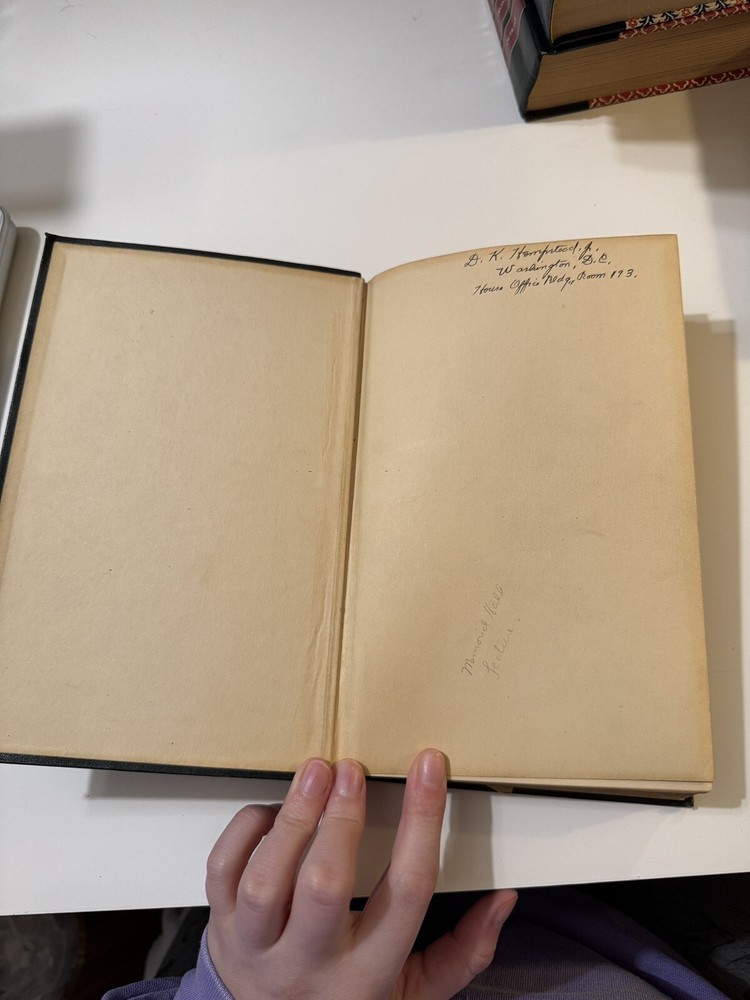 D. K. Hempstead, Jr.
Washington, D.C.
House Office Bldg, Room 193.
Memorial Hall